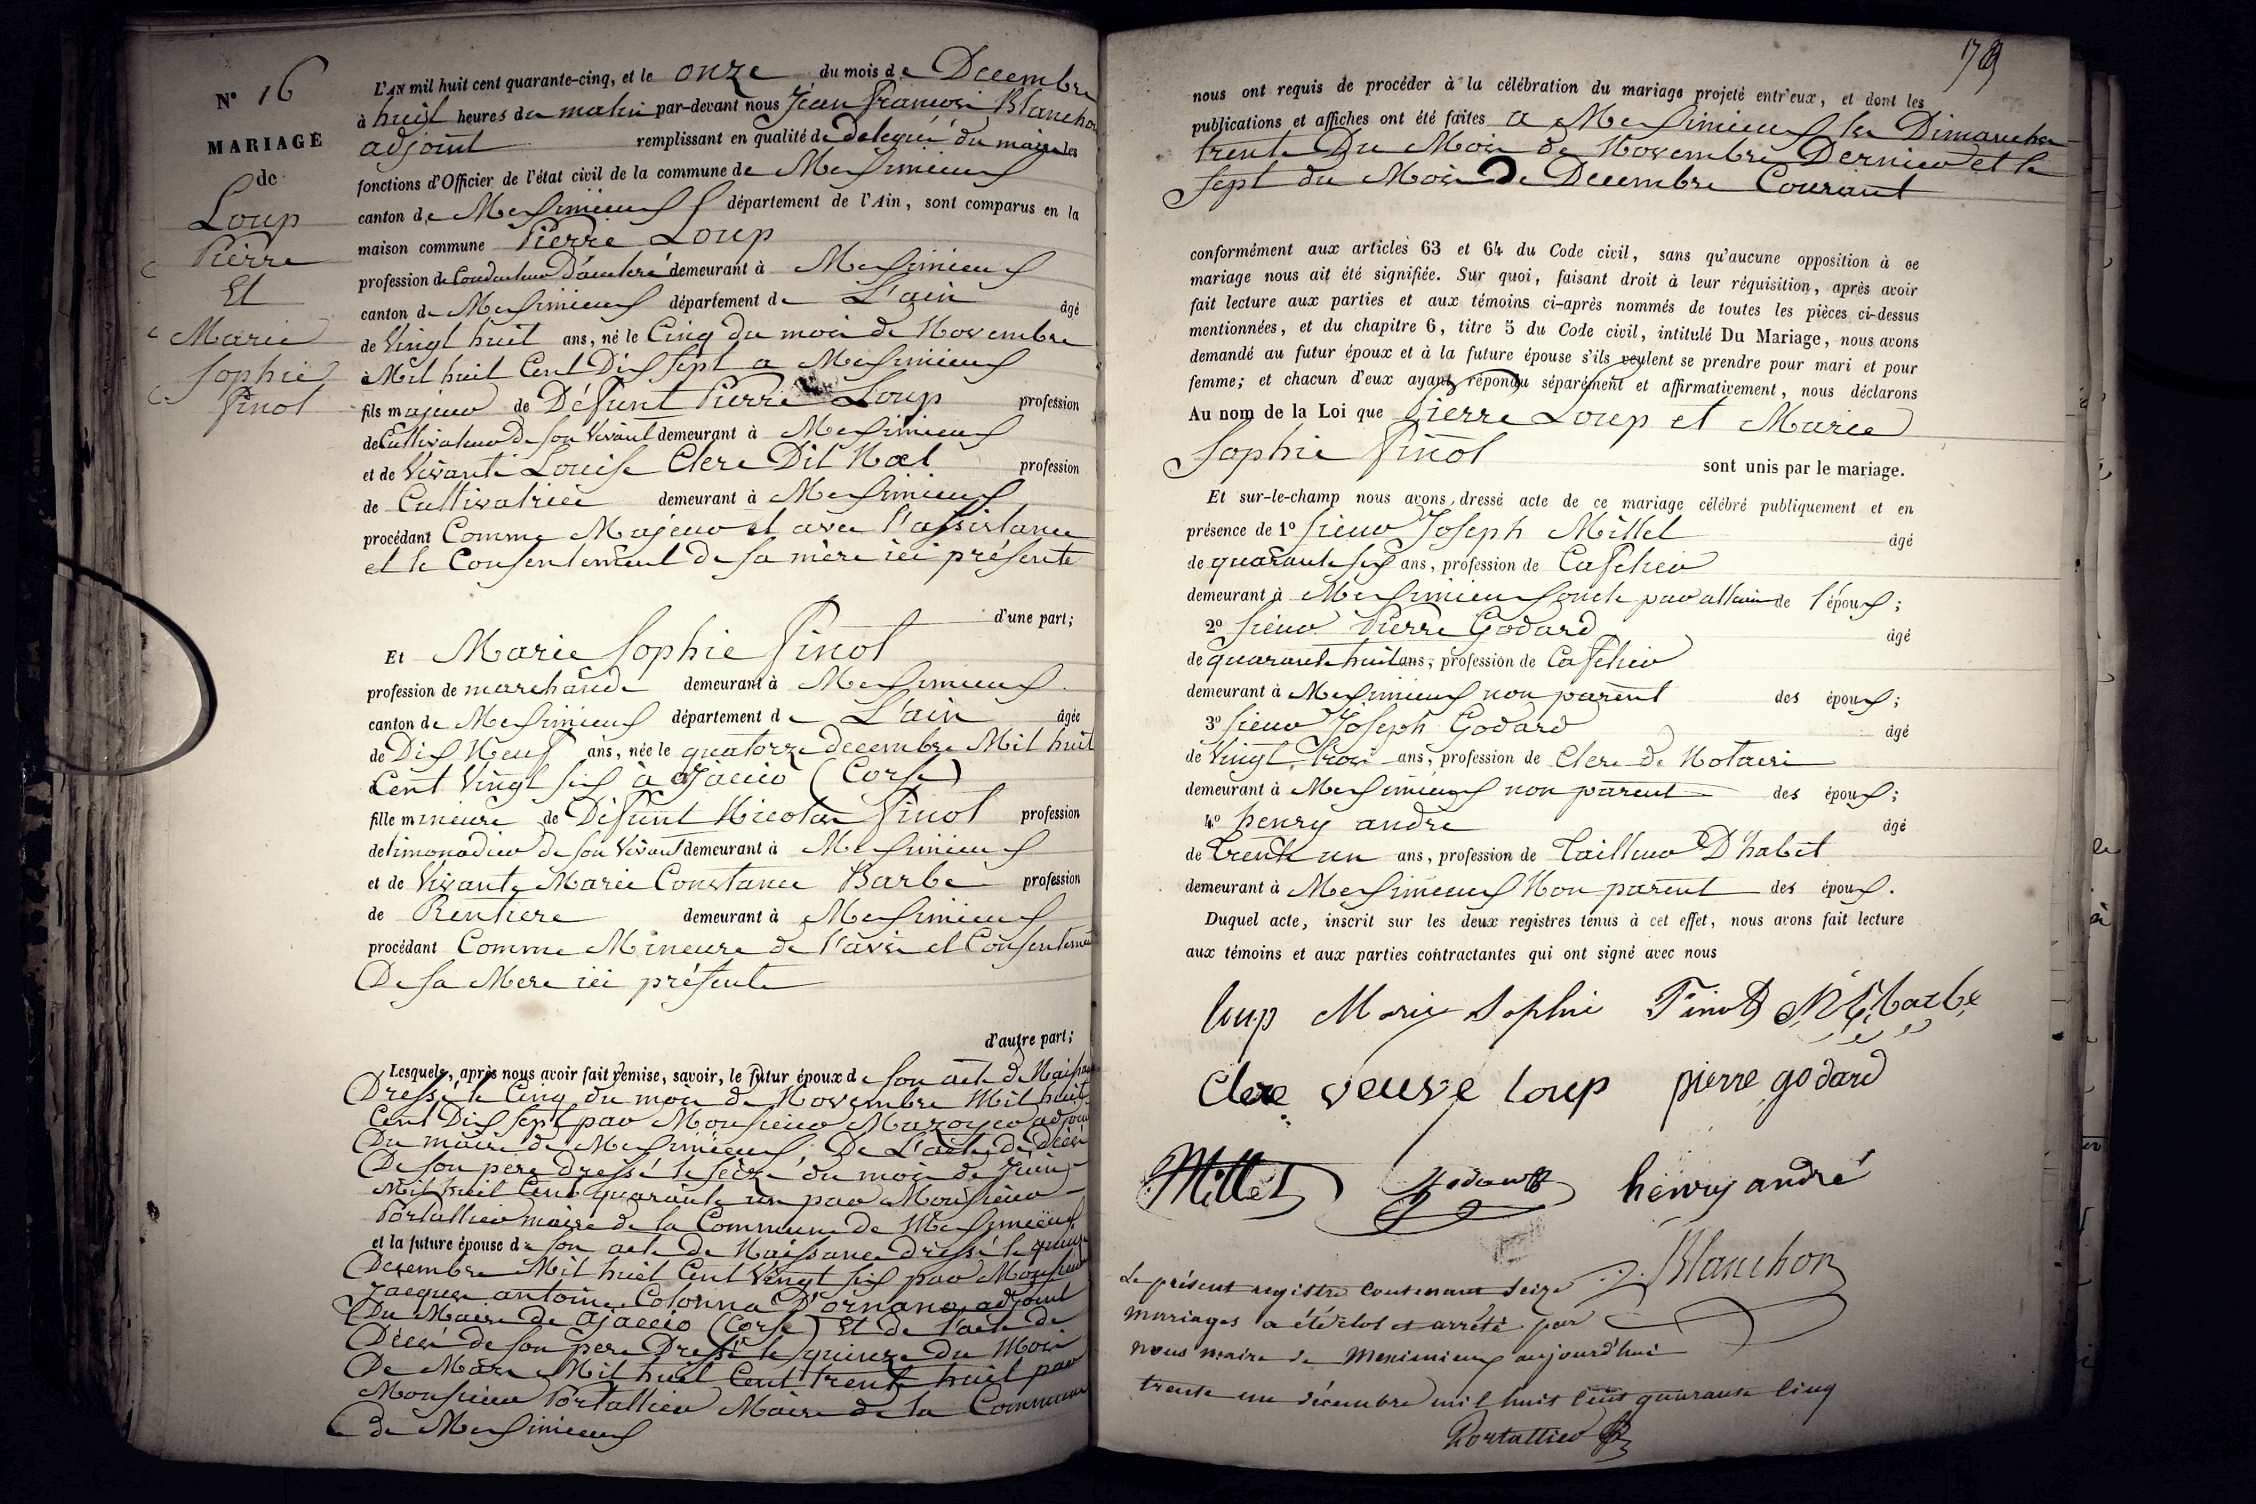 N° 16
MARIAGE
de
Loup
Pierre
Et
Marie
Sophie
Finot
L'AN mil huit cent quarante-cinq, et le onze du mois de Decembre
à huit heures du matin par-devant nous Jean François Blanchon
adjoint remplissant en qualité de delegué du maire les
fonctions d'Officier de l'état civil de la commune de Meximieux
canton de Meximieux département de l'Ain, sont comparus en la
maison commune Pierre Loup
profession de Conducteur demeurant à Meximieux
canton de Meximieux département de L'ain âgé
de Vingt huit ans, né le Cinq du mois de Novembre
Mil huit Cent Dix Sept a Meximieux
fils majeur de Défunt Pierre Loup profession
de Cultivateur de son Vivant demeurant à Meximieux
et de Vivante Louise Clerc Dit Noel profession
de Cultivatrice demeurant à Meximieux
procédant Comme Majeur et avec l'assistance
et le Consentement de sa mère ici présente
d'une part;
Et Marie Sophie Finot
profession de marchande demeurant à Meximieux
canton de Meximieux département de L'ain âgée
de Dix Neuf ans, née le quatorze decembre Mil huit
Cent Vingt six à ajaccio (Corse)
fille mineure de Défunt Nicolas Finot profession
de limonadier de son Vivant demeurant à Meximieux
et de Vivante Marie Constance Barbe profession
de Rentiere demeurant à Meximieux
procédant Comme Mineure de l'avis et Consentement
De sa Mere ici présente
d'autre part;
Lesquels, après nous avoir fait remise, savoir, le futur époux de son acte de Naissance
Dressé le Cinq du mois de Novembre Mil huit
Cent Dix sept par Monsieur Mazoyer adjoint
Du maire de Meximieux, De L'acte de décès
De son pere dressé le seize du mois de Juin
Mil huit Cent quarante un par Monsieur
Portallier maire de la Commune de Meximieux
et la future épouse de son acte de Naissance dressé le quinze
Decembre Mil huit Cent Vingt six par Monsieur
Jacques antoine Colonna D'ornano adjoint
Du Maire de ajaccio (Corse) Et de l'acte de
Décès de son pere Dressé le quinze Du Mois
De Mars Mil huit Cent trente huit par
Monsieur Portallier Maire de la Commune
de Meximieux
nous ont requis de procéder à la célébration du mariage projeté entr'eux, et dont les
publications et affiches ont été faites a Meximieux les Dimanches
trente Du Mois de Novembre Dernier et le
sept du Mois De Decembre Courant
conformément aux articles 63 et 64 du Code civil, sans qu'aucune opposition à ce
mariage nous ait été signifiée. Sur quoi, faisant droit à leur réquisition, après avoir
fait lecture aux parties et aux témoins ci-après nommés de toutes les pièces ci-dessus
mentionnées, et du chapitre 6, titre 5 du Code civil, intitulé Du Mariage, nous avons
demandé au futur époux et à la future épouse s'ils veulent se prendre pour mari et pour
femme; et chacun d'eux ayant répondu séparément et affirmativement, nous déclarons
Au nom de la Loi que Pierre Loup et Marie
Sophie Finot sont unis par le mariage.
Et sur-le-champ nous avons dressé acte de ce mariage célébré publiquement et en
présence de 1° Sieur Joseph Millet âgé
de quarante six ans, profession de Caffetier
demeurant à Meximieux oncle par alliance de l'époux;
2° Sieur Pierre Godard âgé
de quarante huit ans, profession de Caffetier
demeurant à Meximieux non parent des époux;
3° Sieur Joseph Godard âgé
de Vingt trois ans, profession de Clerc de Notaire
demeurant à Meximieux non parent des époux;
4° henry andré âgé
de trente un ans, profession de Tailleur D'habit
demeurant à Meximieux Non parent des époux.
Duquel acte, inscrit sur les deux registres tenus à cet effet, nous avons fait lecture
aux témoins et aux parties contractantes qui ont signé avec nous
loup Marie Sophie Finot Barbe
Clerc veuve loup pierre godard
Millet Godard henry andré
J. Blanchon
Le présent registre contenant seize
mariages a été clos et arrêté par
nous maire de Meximieux aujourd'hui
trente un décembre mil huit cent quarante cinq
Portallier